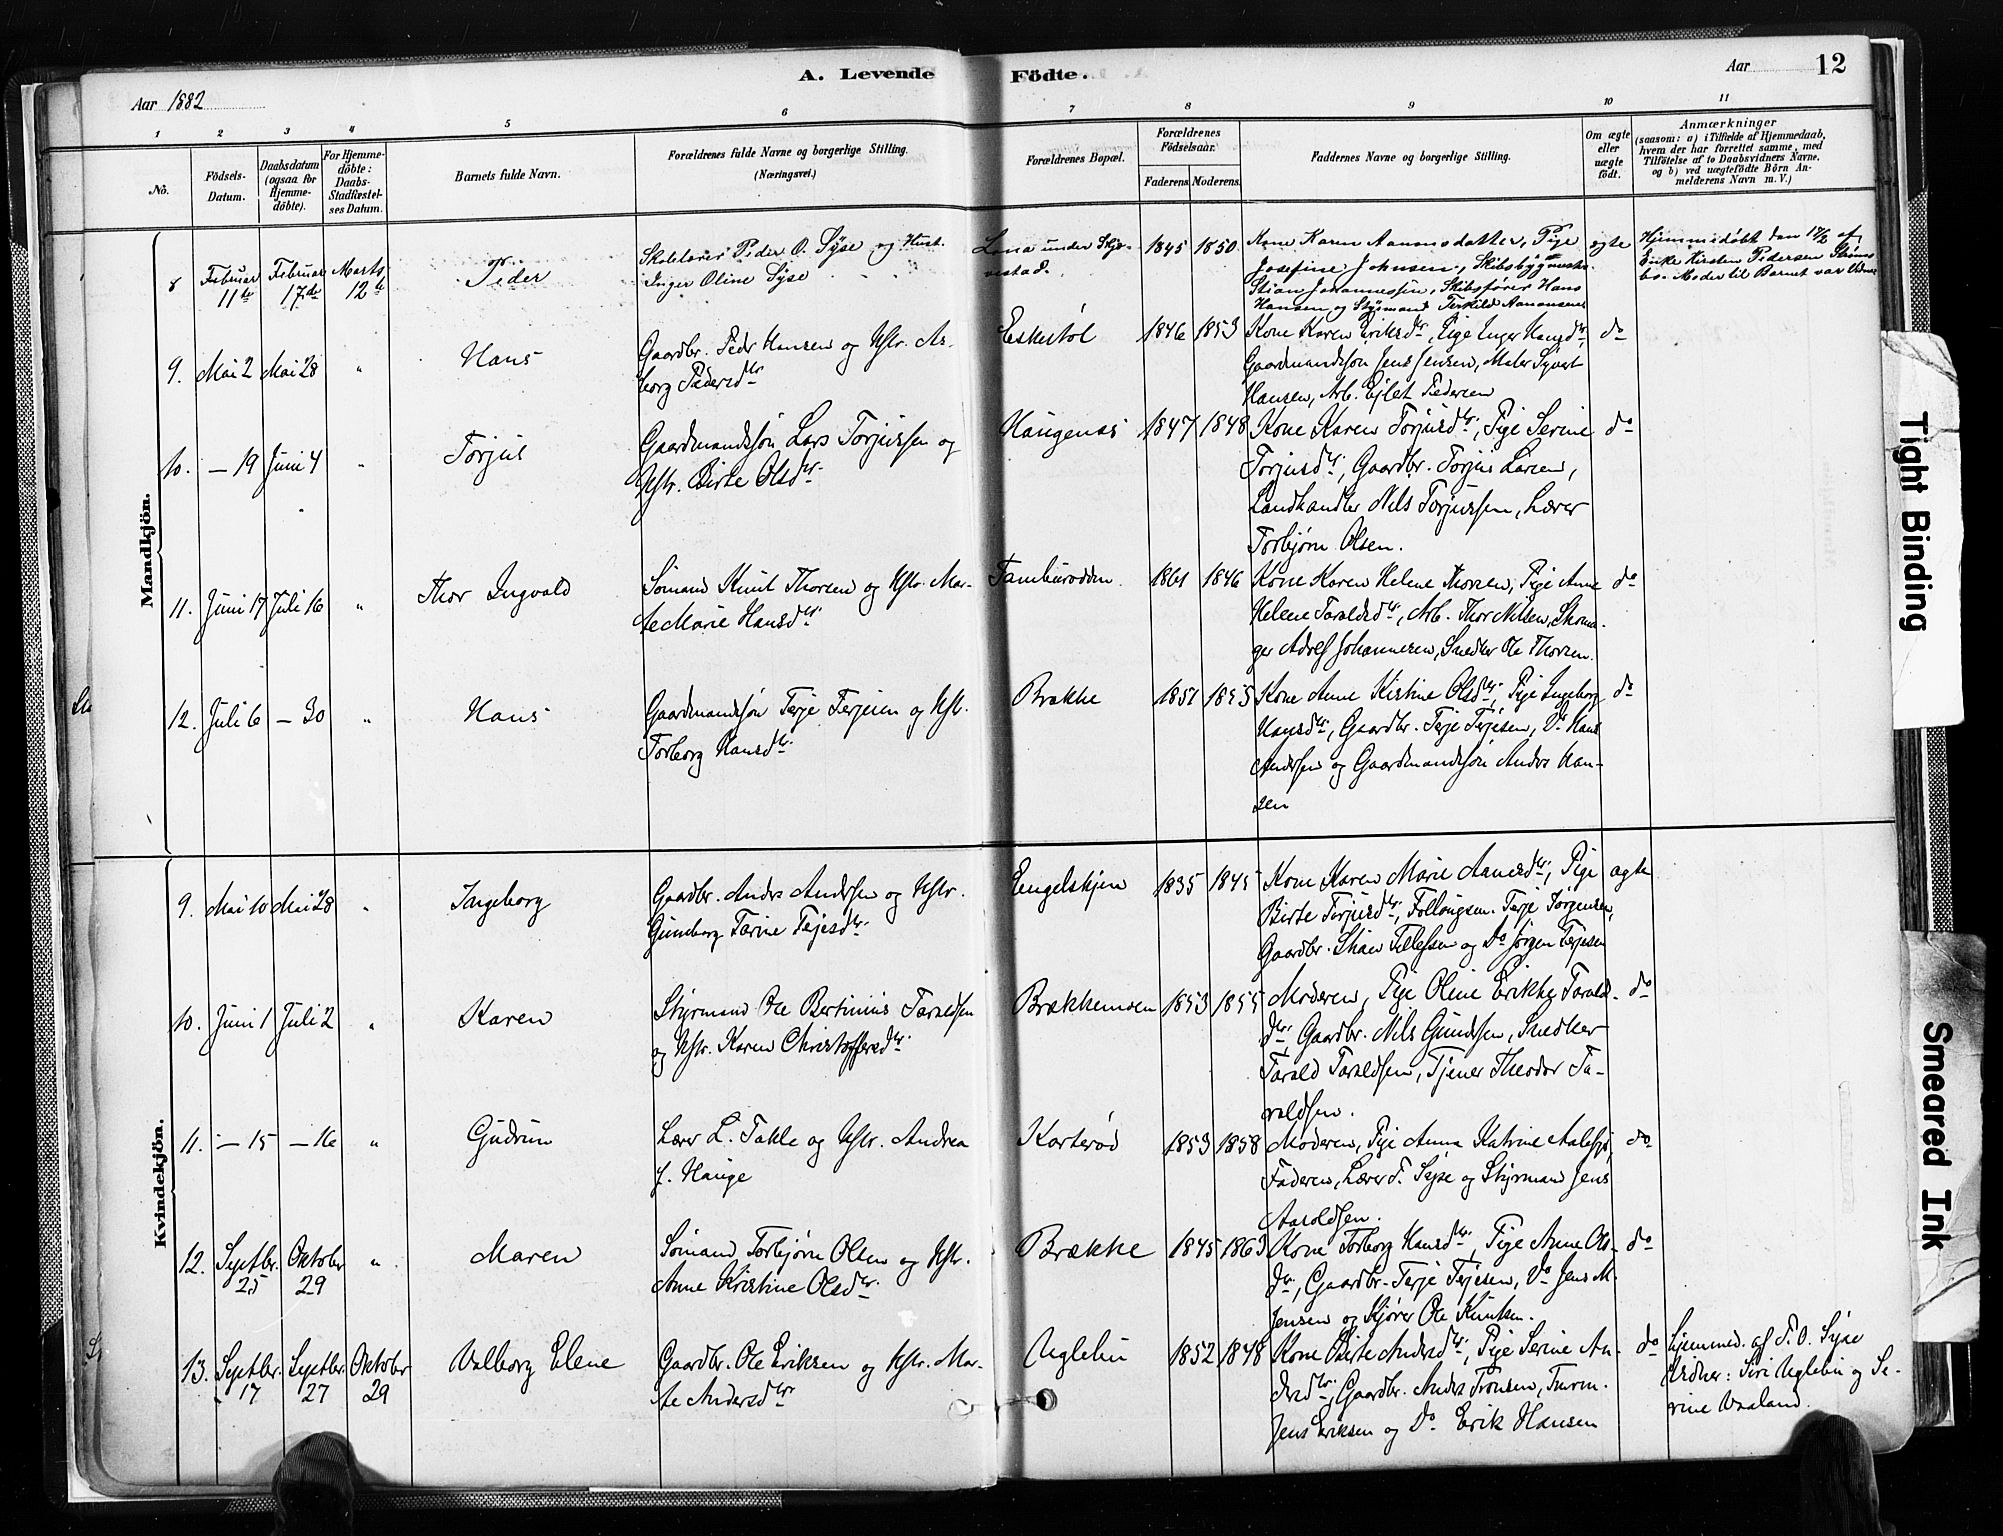 A. Levende Födte.
Aar 1882
Aar 12
1 2 3 4 5 6 7 8 9 10 11
No.
Födsels-Datum.
Daabsdatum (ogsaa for Hjemmedöbte).
For Hjemmedöbte: Daabs-Stadfæstelses Datum.
Barnets fulde Navn.
Forældrenes fulde Navne og borgerlige Stilling. (Næringsvei.)
Forældrenes Bopæl.
Forældrenes Födselsaar.
Faderens. Moderens.
Faddernes Navne og borgerlige Stilling.
Om ægte eller uægte födt.
Anmærkninger
(saasom: a) i Tilfælde af Hjemmedaab, hvem der har forrettet samme, med Tilföielse af to Daabsvidners Navne, og b) ved uægtefödte Börn Anmelderens Navn m. V.)
Mandkjön.
8 Februar 11te Februar 17de Marts 12te
Peder
Skolelærer Peder O. Syse og Hust.
Inger Oline Syse
1845 1850
Kone Karen Aanonsdatter, Pige
Josefine Johnsen, Skibsbygmester
Stian Johannessen, Skibsfører Hans
Hansen og Styrmand Terkild Aanonsens
ægte
Hjemmedøbt den 17/2 af
Enke Kirsten Pedersen
Moder til Barnet var
9. Mai 2 Mai 28 "
Hans
Gaardbr. Peder Hansen og Hstr. As-
borg Pedersdtr.
Eskestøl
1846 1853
Kone Karen Eriksdtr., Pige Inger Hansdtr.
Gaardmandssøn Jens Jensen, Maler Syvert
Hansen, Arb. Ejlet Pedersen
do
10. — 19 Juni 4 "
Torjus
Gaardmandssøn Lars Torjussen og
Hstr. Birte Olsdtr.
Haugenes
1847 1848
Kone Karen Torjusdtr., Pige Serine
Torjusdtr., Gaardbr. Torjus Larsen,
Landhandler Nils Torjussen, Lærer
Torbjørn Olsen.
do
11. Juni 17 Juli 16 "
Thor Ingvald
Sømand Knut Thorsen og Hstr. Mar-
te Marie Hansdtr.
1861 1846
Kone Karen Helene Thorsen, Pige Anne
Helene Taraldsdtr., Arb. Thor Nilsen, Skoma-
ger Adolf Johannesen, Snedker Ole Thorsen.
do
12. Juli 6 — 30 "
Hans
Gaardmandssøn Terje Terjesen og Hstr.
Torborg Hansdtr.
Brække
1851 1855
Kone Anne Kirstine Olsdtr., Pige Ingeborg
Hansdtr., Gaardbr. Terje Terjesen, Do Hans
Andersen og Gaardmandssøn Anders Han-
sen
do
Kvindekjön.
9. Mai 10 Mai 28 "
Ingeborg
Gaardbr. Anders Andersen og Hstr.
Gunborg Tarine Terjesdtr.
Engelskjen
1835 1845
Kone Karen Marie Aanesdtr., Pige
Birte Torjusdtr., Terje Jørgensen,
Gaardbr. Tellefsen og Do Jørgen Terjesen
ægte
10. Juni 1 Juli 2 "
Karen
Styrmand Ole Bertinius Taraldsen
og Hstr. Karen Christoffersdtr.
Brækkemoen
1853 1855
Moderen, Pige Oline Erikke Tarald-
dtr., Gaardbr. Nils Gundersen, Snedker
Tarald Taraldsen, Tjener Theodor Ta-
raldsen.
do
11. — 15 — 16 "
Gudrun
Lærer L. Takle og Hstr. Andrea
J. Hauge
Korterød
1853 1858
Moderen, Pige Anna Katrine
Faderen, Lærer P. Syse og Styrmand Jens
Aaroldsen.
do
12. Septbr. 25 Oktober 29 "
Maren
Sømand Torbjørn Olsen og Hstr.
Anne Kristine Olsdtr.
Brække
1845 1863
Kone Torborg Hansdtr., Pige Anne Ols-
dtr., Gaardbr. Terje Terjesen, Do Jens M.
Jensen og Kjører Ole Knutsen.
do
13. Septbr. 17 Septbr. 27 Oktober 29
Valborg Elene
Gaardbr. Ole Eriksen og Hstr. Mar-
te Andersdtr.
Uglebu
1852 1848
Kone Birte Andersdtr., Pige Serine An-
dersdtr., Gaardbr. Anders Tronsen, Tmrm.
Jens Eriksen og Do Erik Hansen
do
Hjemmed. af P. O. Syse
Vidner: Siri Uglebu og Se-
rine Vraaland.
Tight Binding
Smeared Ink